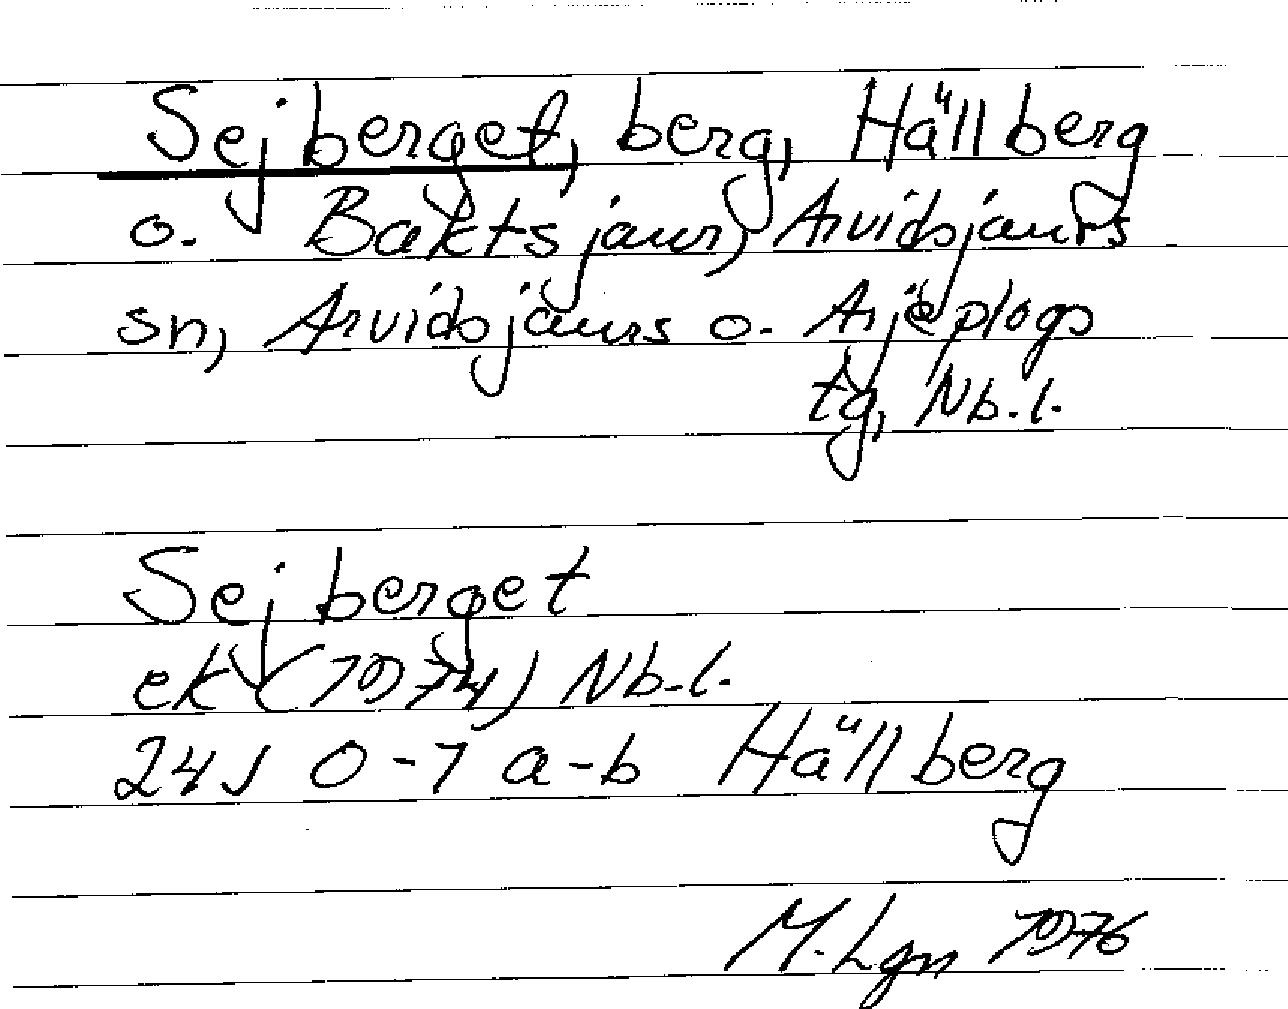 Sejberget, berg, Hällberg
o. Baktsjaur, Arvidsjaurs
sn, Arvidsjaurs o. Arjeplogs
tg, Nb.l.
Sejberget
ek (1974) Nb.l.
24J 0-1 a-b Hällberg
M. Lgn 1976